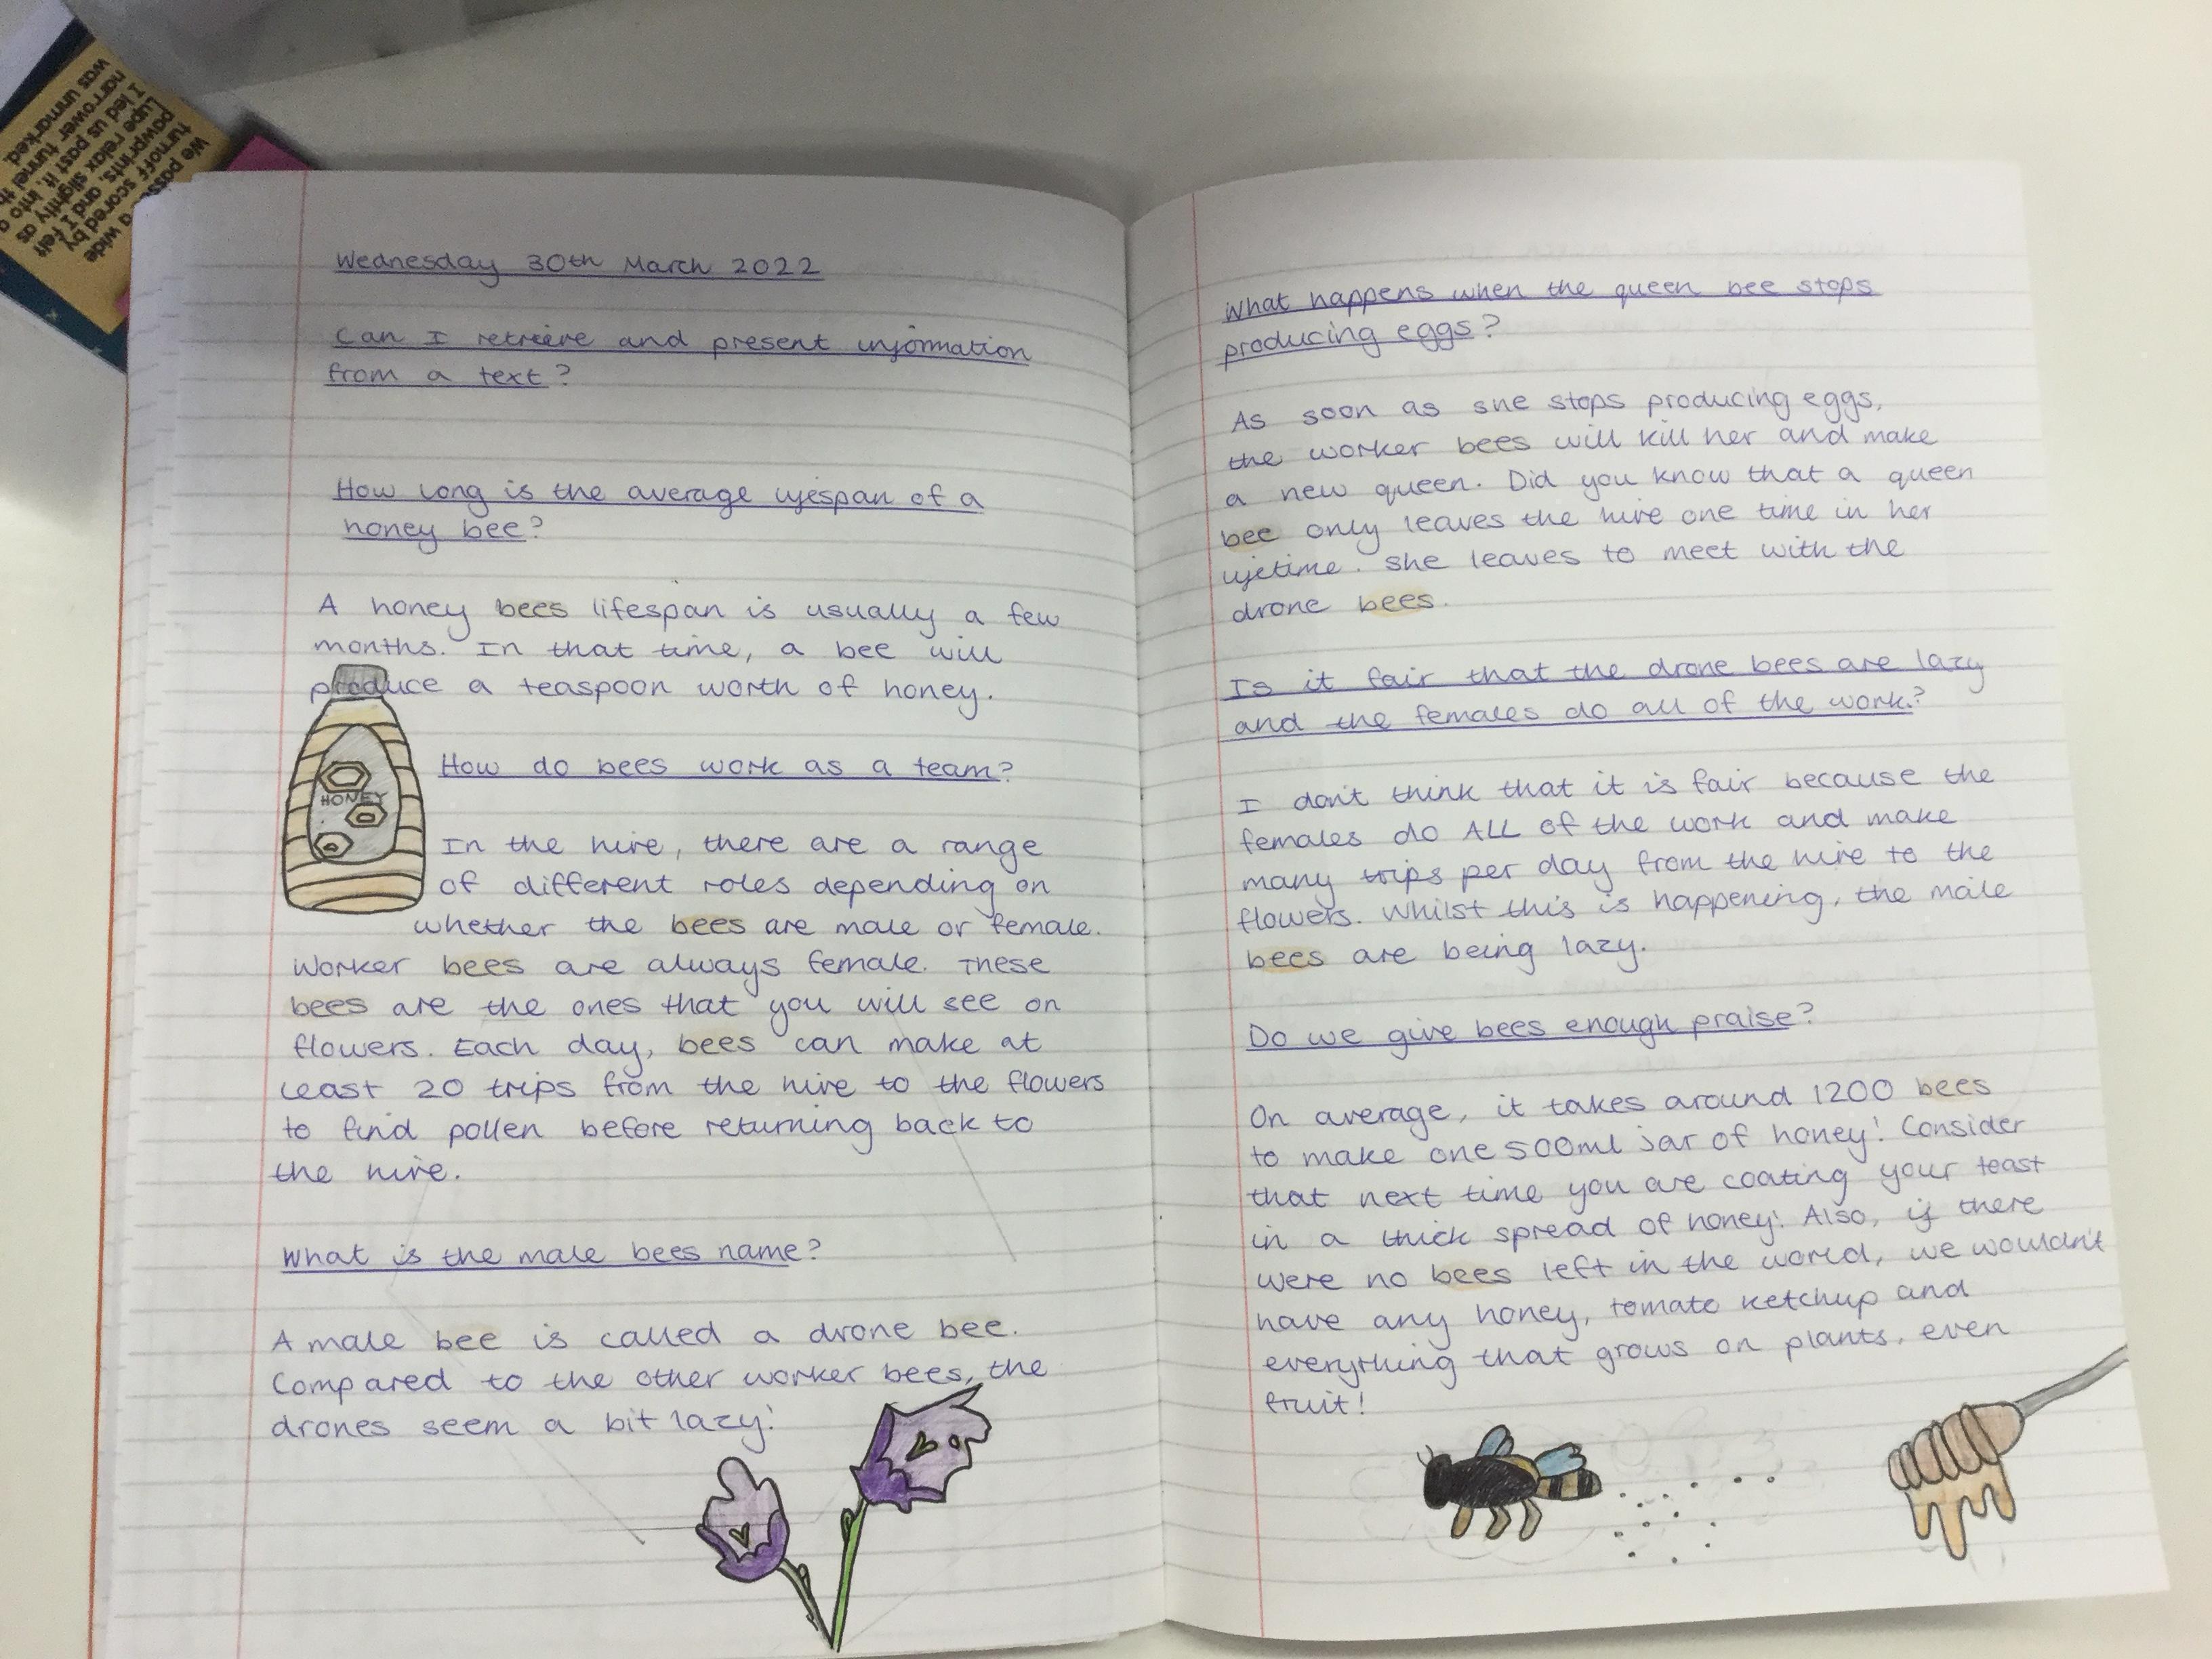 We passed a wide
turnoff scored by
pawprints, and I felt
Lupe relax slightly as
I led us past it, into a
narrower tunnel th
was unmarked.
Wednesday 30th March 2022
Can I retrieve and present information
from a text?
How long is the average lifespan of a
honey bee?
A honey bees lifespan is usually a few
months. In that time, a bee will
produce a teaspoon worth of honey.
HONEY
How do bees work as a team?
In the hive, there are a range
of different roles depending on
whether the bees are male or female.
Worker bees are always female. These
bees are the ones that you will see on
flowers. Each day, bees can make at
least 20 trips from the hive to the flowers
to find pollen before returning back to
the hive.
What is the male bees name?
A male bee is called a drone bee.
Compared to the other worker bees, the
drones seem a bit lazy!
What happens when the queen bee stops
producing eggs?
As soon as she stops producing eggs,
the worker bees will kill her and make
a new queen. Did you know that a queen
bee only leaves the hive one time in her
lifetime. She leaves to meet with the
drone bees.
Is it fair that the drone bees are lazy
and the females do all of the work?
I don't think that it is fair because the
females do ALL of the work and make
many trips per day from the hive to the
flowers. Whilst this is happening, the male
bees are being lazy.
Do we give bees enough praise?
On average, it takes around 1200 bees
to make one 500ml jar of honey! Consider
that next time you are coating your toast
in a thick spread of honey! Also, if there
were no bees left in the world, we wouldn't
have any honey, tomato ketchup and
everything that grows on plants, even
fruit!